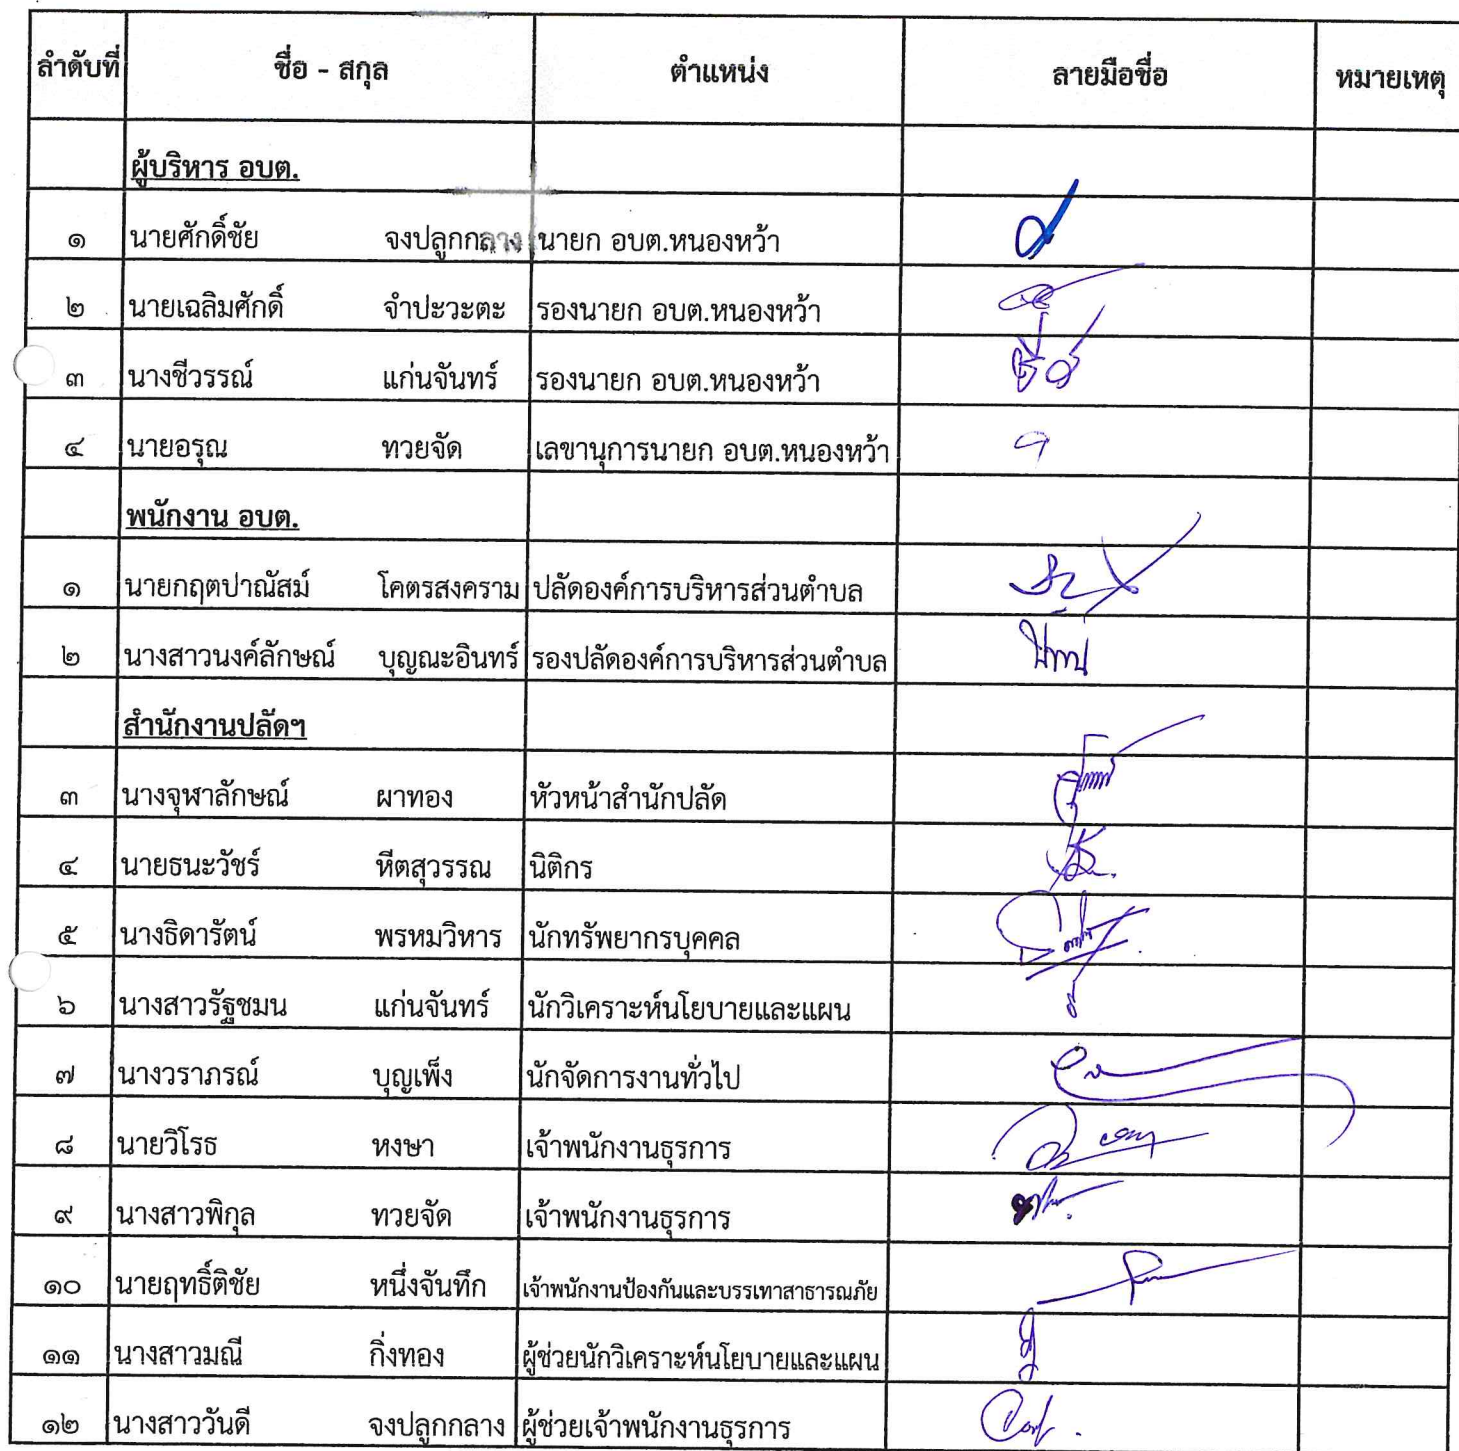 ลำดับที่ ชื่อ - สกุล ตำแหน่ง ลายมือชื่อ หมายเหตุ
ผู้บริหาร อบต.
๑ นายศักดิ์ชัย จงปลูกกลาง นายก อบต.หนองหว้า
๒ นายเฉลิมศักดิ์ จำปะวะตะ รองนายก อบต.หนองหว้า
๓ นางชีวรรณ์ แก่นจันทร์ รองนายก อบต.หนองหว้า
๔ นายอรุณ ทวยจัด เลขานุการนายก อบต.หนองหว้า
พนักงาน อบต.
๑ นายกฤตปาณัสม์ โคตรสงคราม ปลัดองค์การบริหารส่วนตำบล
๒ นางสาวนงค์ลักษณ์ บุญณะอินทร์ รองปลัดองค์การบริหารส่วนตำบล
สำนักงานปลัดฯ
๓ นางจุฬาลักษณ์ ผาทอง หัวหน้าสำนักปลัด
๔ นายธนะวัชร์ หีตสุวรรณ นิติกร
๕ นางธิดารัตน์ พรหมวิหาร นักทรัพยากรบุคคล
๖ นางสาวรัฐชมน แก่นจันทร์ นักวิเคราะห์นโยบายและแผน
๗ นางวราภรณ์ บุญเพ็ง นักจัดการงานทั่วไป
๘ นายวิโรธ หงษา เจ้าพนักงานธุรการ
๙ นางสาวพิกุล ทวยจัด เจ้าพนักงานธุรการ
๑๐ นายฤทธิ์ติชัย หนึ่งจันทึก เจ้าพนักงานป้องกันและบรรเทาสาธารณภัย
๑๑ นางสาวมณี กิ่งทอง ผู้ช่วยนักวิเคราะห์นโยบายและแผน
๑๒ นางสาววันดี จงปลูกกลาง ผู้ช่วยเจ้าพนักงานธุรการ